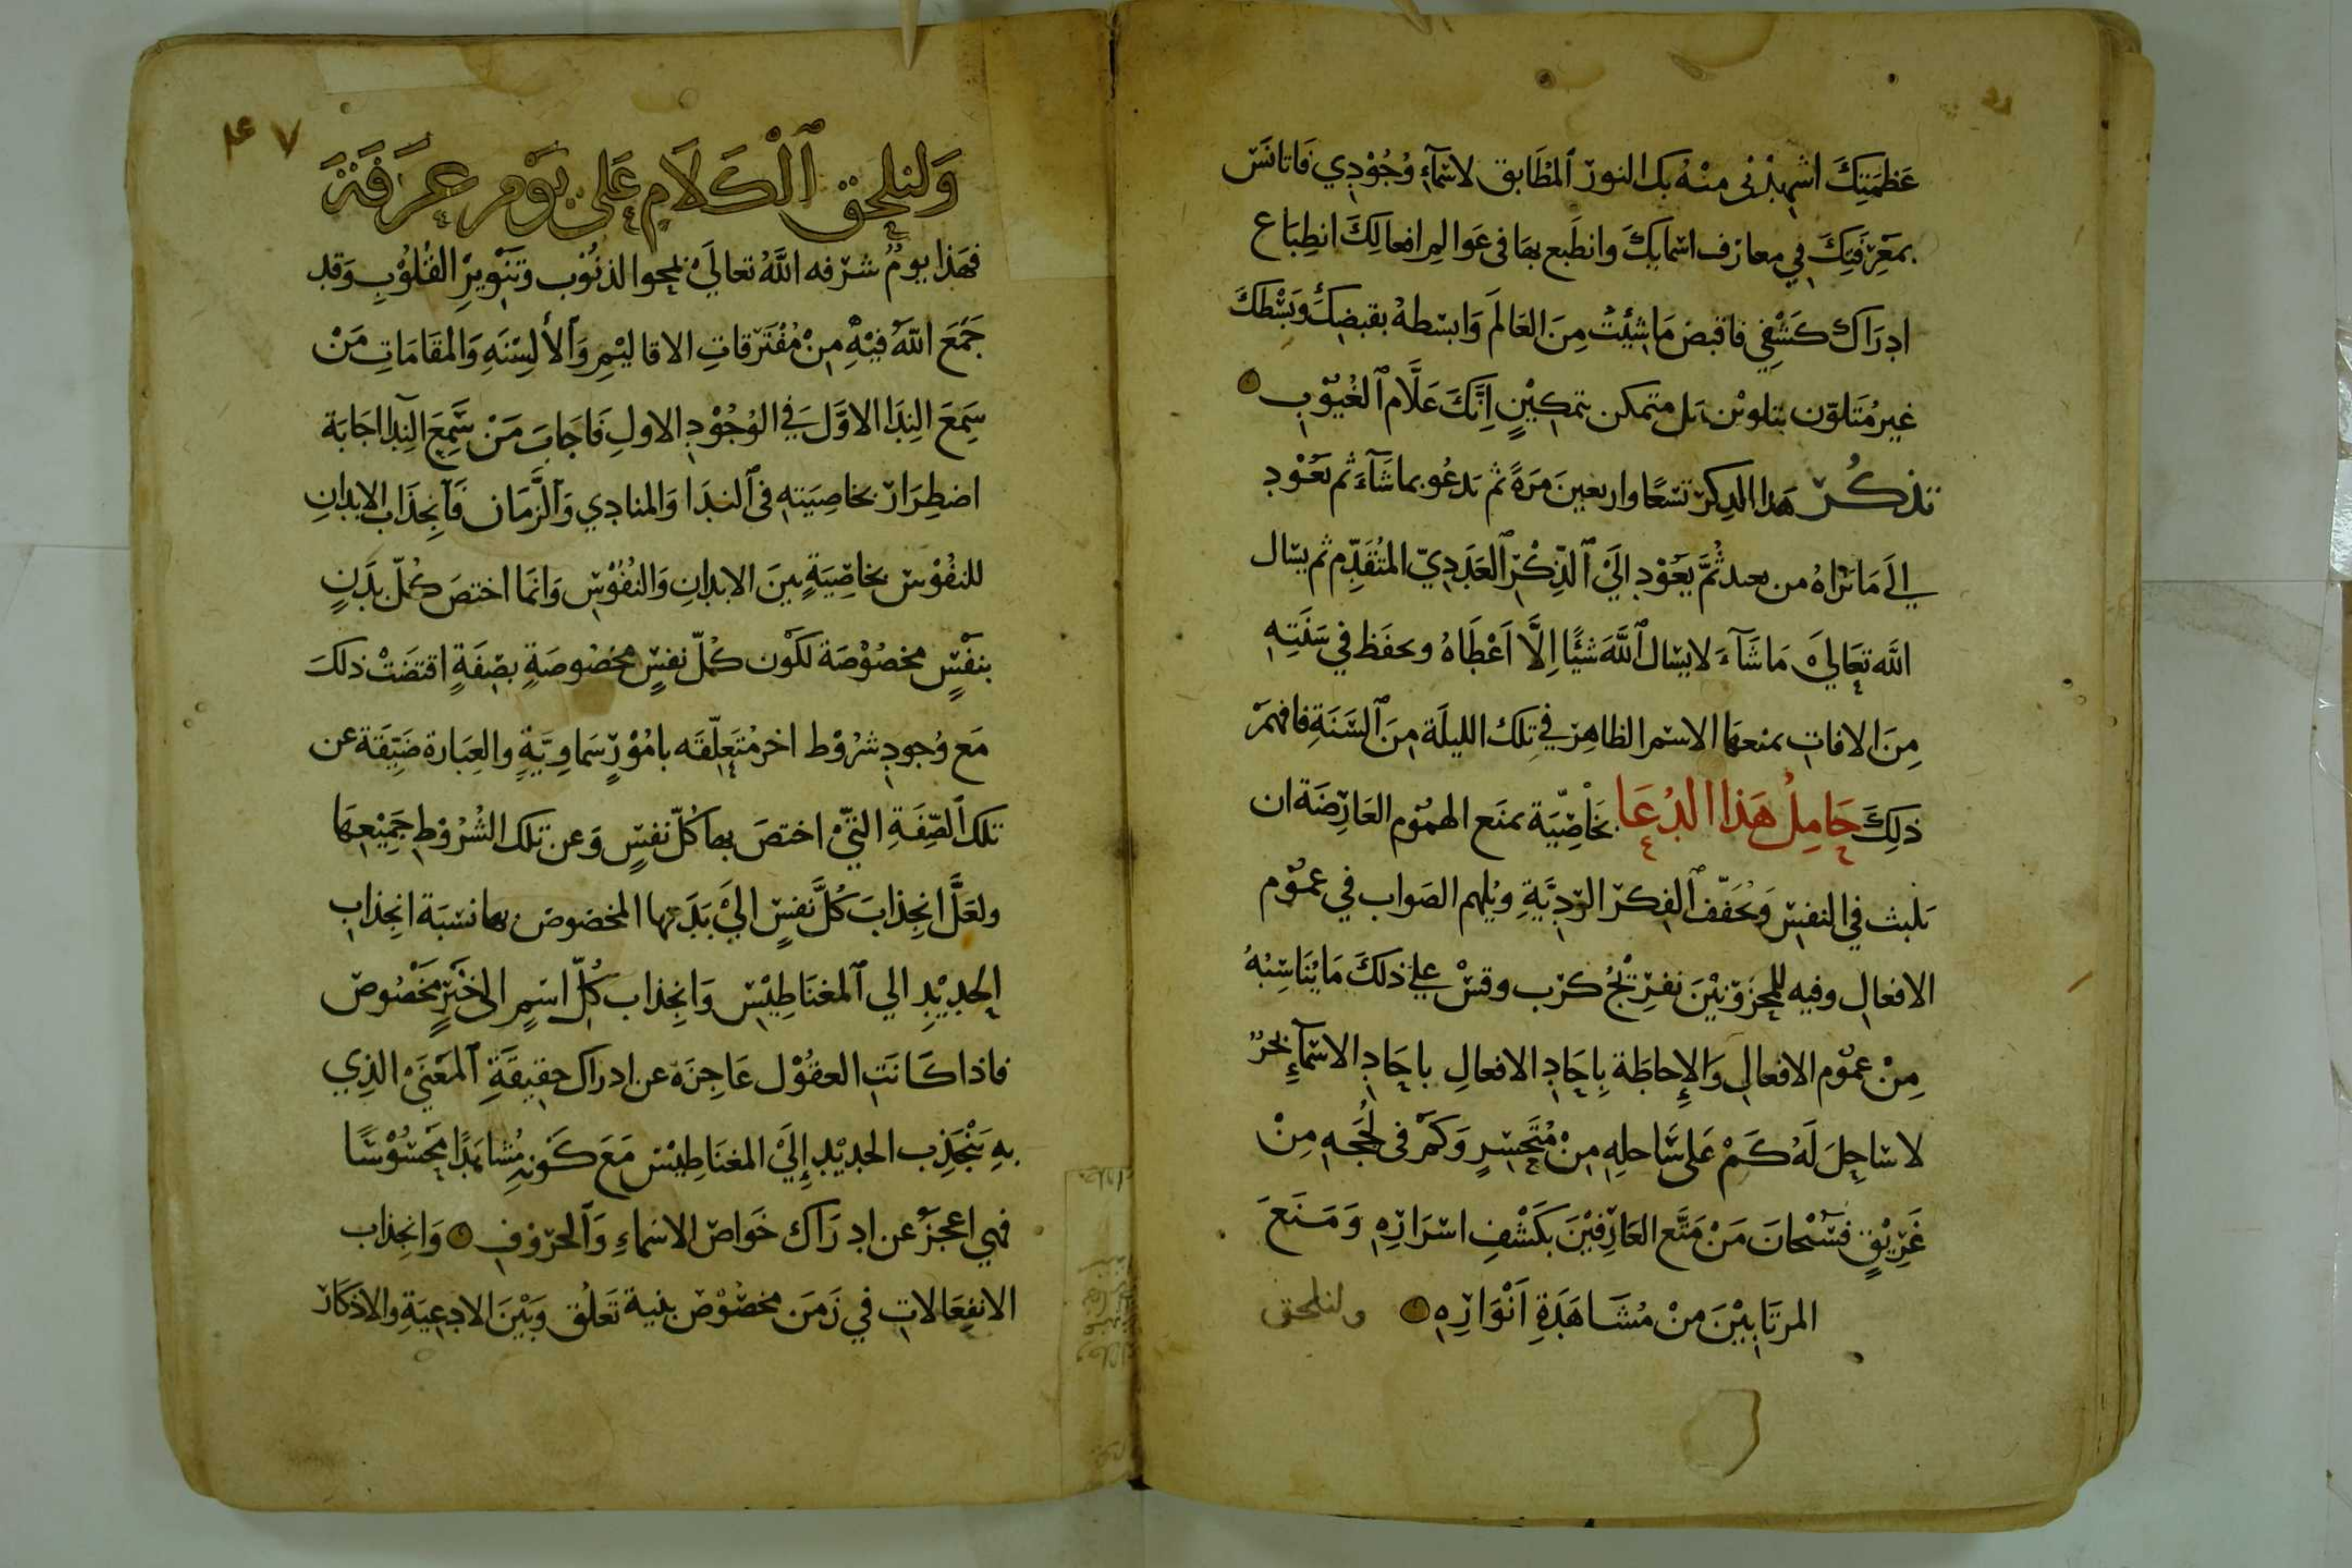 عَظَمَتِكَ اشهِدْنِي مِنْهُ بك النور ٱلمُطَابق لاسْمآءِ وُجُوْدِي فَاتانَسَ
بمَعْرِفَتِكَ فِي معارف اسمايِكَ وانطَبع بهَا فى عَوالِم افعالِكَ انطِبَاع
ادِرَاك كَشْفِي فاقبض مَا شِئْتَ مِنَ العَالَم وَابسطهُ بقبضِكَ وَبَسْطكَ
غير مُتَلوّن بتلوين بَل متمكن بتمكِيْنٍ اِنَّكَ عَلَّام ٱلغُيُوْبِ
تذكُر هَذا الذِكر تسْعًا واربعينَ مَرَةً ثم يَدعُو بما شَآءَ ثم يَعُوْدِ
الَى مَا تَرَاهُ من بعد ثُمَّ يَعُوْدِ اِلَيْ ٱلذِّكْرِ ٱلعَدَدِيّ المتُقَدِّم ثم يسَال
اللَّه تعَالَيْ مَا شَآءَ لا يسَال ٱللَّهَ شَيْئًا اِلَّا اَعْطَاهُ ويحفَظ فِي سَنَتِهِ
مِنَ الافاتِ بمنعهَا الاسْم الظاهِر فِي تِلكَ الليلَة مِنَ ٱلسَّنَةِ فافهمَ
ذلِكَ حَامِلُ هَذا الدُعَا بخَاصِّيَّة بمنَع الهمُوم العَارِضَة ان
تلبث فِي النفسِ وَيُخفّف ٱلفِكر الرَدِيَّةِ ويُلهم الصَواب فِي عمُوم
الافعالِ وفيه للمحزوْنِيْنَ تفرِيْجُ كرْب وقسْ عليْ ذلكَ مَا يُنَاسِبُهُ
مِنْ عمُوم الافعالِ وَالاِحاطَة بِاحَادِ الافعالِ باحَادِ الاسْمآءِ بحرٌ
لا سَاحِلَ لَهُ كَمْ عَلى سَاحلِهِ مِنْ مُتَحَسِرٍ وَكَمْ فى لُجَجِهِ مِنْ
غَرِيْقٍ فسُبْحانَ مَنْ مَتَّع العَارِفيْنَ بكَشْفِ اسْرَارِهِ وَمَنَعَ
المرتَابِيْنَ مِنْ مُشَاهَدَةِ اَنْوَارِهِ ولنلحق
٤٧
وَلنلحق ٱلْكَلَامِ عَلى يَوْمِ عَرَفَةَ
فهَذا يومٌ شرّفه اللَّهُ تعالَيْ لمحو الذنُوْب وَتَنْوِيرِ القُلُوْبِ وَقد
جَمَعَ اللَّهُ فيْهِ مِنْ مُفْتَرَقاتِ الاقاليْمِ وَٱلأَلسِنَهِ وَالمقَامَاتِ مَنْ
سَمِعَ النِدَا الاوَّلَ فِي الوُجُوْدِ الاولِ فَاجَابَ مَنْ سَّمِعَ النِدَا اجَابَة
اضطِرَار بخاصِيَتهِ فى ٱلندَا وَالمنادِي وَٱلزَّمَان فَانجِذَاب الابدانِ
للنفُوْس بخاصِّيَةٍ بيَنَ الابدانِ وَالنُفُوْسِ وَانمَا اختصَ كُلّ بَدَنٍ
بنفْسٍ مخصُوْصَة لكَوْن كُلّ نفسٍ مخصُوصَةٍ بصِفَةٍ اقتضَتْ ذلكَ
مَع وُجودِ شرُوْط اخر مُتَعلِّقَه بامُوْرٍ سَماوِيَّةٍ والعِبَارة ضَيّقَة عن
تلك ٱلصِّفَةِ التيْ اختصَ بهَا كُلّ نفسٍ وَعن تلك الشُرُوْطِ جَمِيْعهَا
ولعَلَّ انجِذابَ كُلَّ نَفسٍ اليْ بَدَنها المخصُوص بها نسْبَة انجِذابِ
الحَدِيْدِ الي ٱلمغنَاطِيْسِ وَانجِذاب كُلّ اسْمٍ الى خَبَرٍ مَخْصُوصْ
فاذا كَانَتِ العقُوْل عَاجِزَة عن ادراك حقِيقَةِ ٱلمَعْنَيْ الذِي
بهِ يَنْجَذِب الحدِيْدِ اِلَيْ المغنَاطِيْسْ مَعَ كَوْنهِ مُشاهَدًا مَحْسُوْسًا
فهي اعجَزُ عن ادِرَاك خَواصْ الاسْماءِ وَٱلحرُوْفِ وَانجِذاب
الانفِعَالاتِ فِي زَمَن مخصُوْص بنيَة تَعلُّق وَبَيْنَ الادعِيَةِ والاذكَار